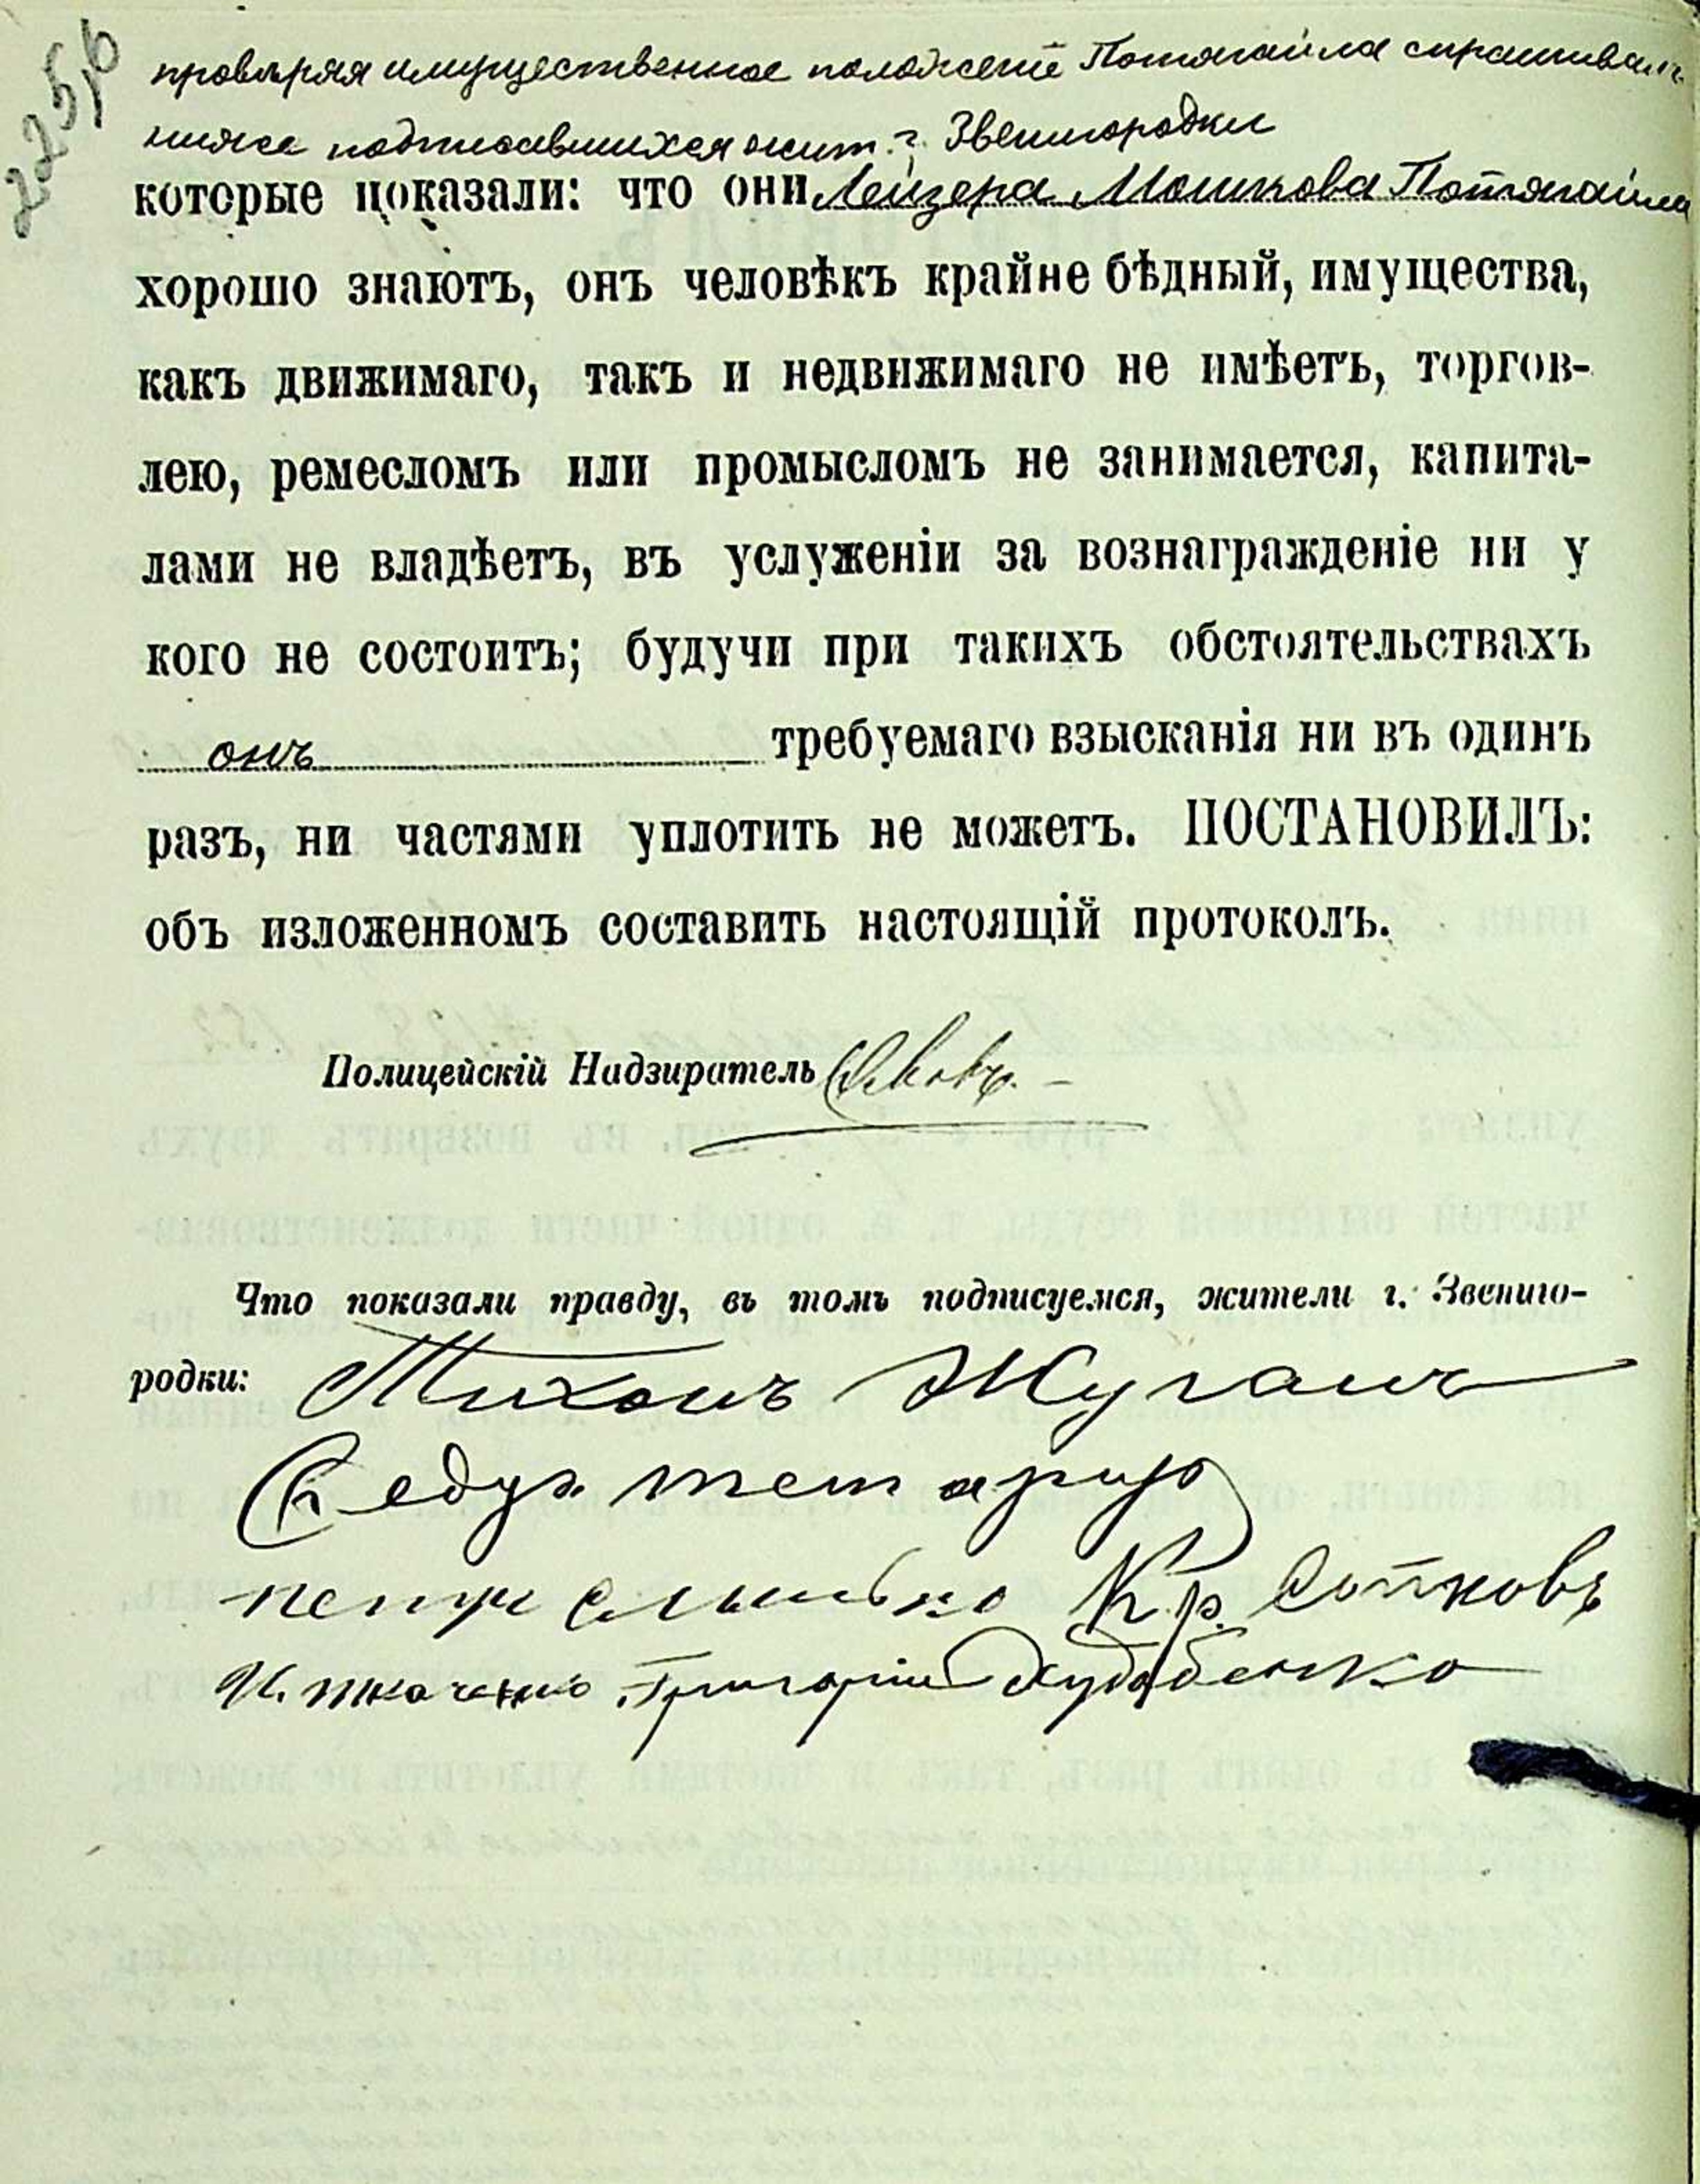 провѣряя имущественное положеніе Потягайла спрашивалъ
ниже подписавшихся жит. г. Звенигородки
которые показали: что они Лейзера Мошкова Потягайла
хорошо знаютъ, онъ человѣкъ крайне бѣдный, имущества,
какъ движимаго, такъ и недвижимаго не имѣетъ, торгов-
лею, ремесломъ или промысломъ не занимается, капита-
лами не владѣетъ, въ услуженіи за вознагражденіе ни у
кого не состоитъ; будучи при такихъ обстоятельствахъ
онъ требуемаго взысканія ни въ одинъ
разъ, ни частями уплотить не можетъ. ПОСТАНОВИЛЪ:
объ изложенномъ составить настоящій протоколъ.
Полицейскій Надзиратель
Что показали правду, въ томъ подписуемся, жители г. Звениго-
родки: Тихонъ Жуганъ
Кр. Сотковъ
И. ткаченко Григорій